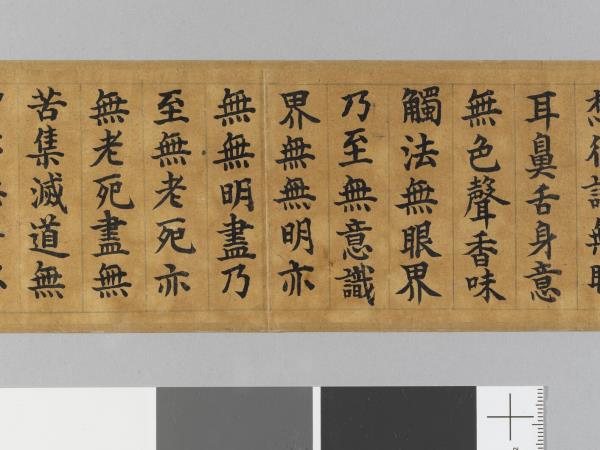 想行識無眼
耳鼻舌身意
無色聲香味
觸法無眼界
乃至無意識
界無無明亦
無無明盡乃
至無老死亦
無老死盡無
苦集滅道無